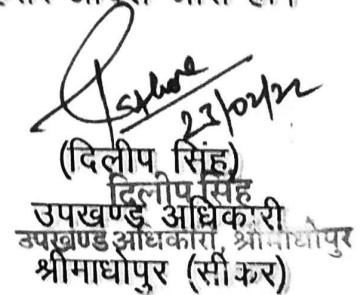 23/02/22
(दिलीप सिंह)
दिलीप सिंह
उपखण्ड अधिकारी
उपखण्ड अधिकारी, श्रीमाधोपुर
श्रीमाधोपुर (सीकर)